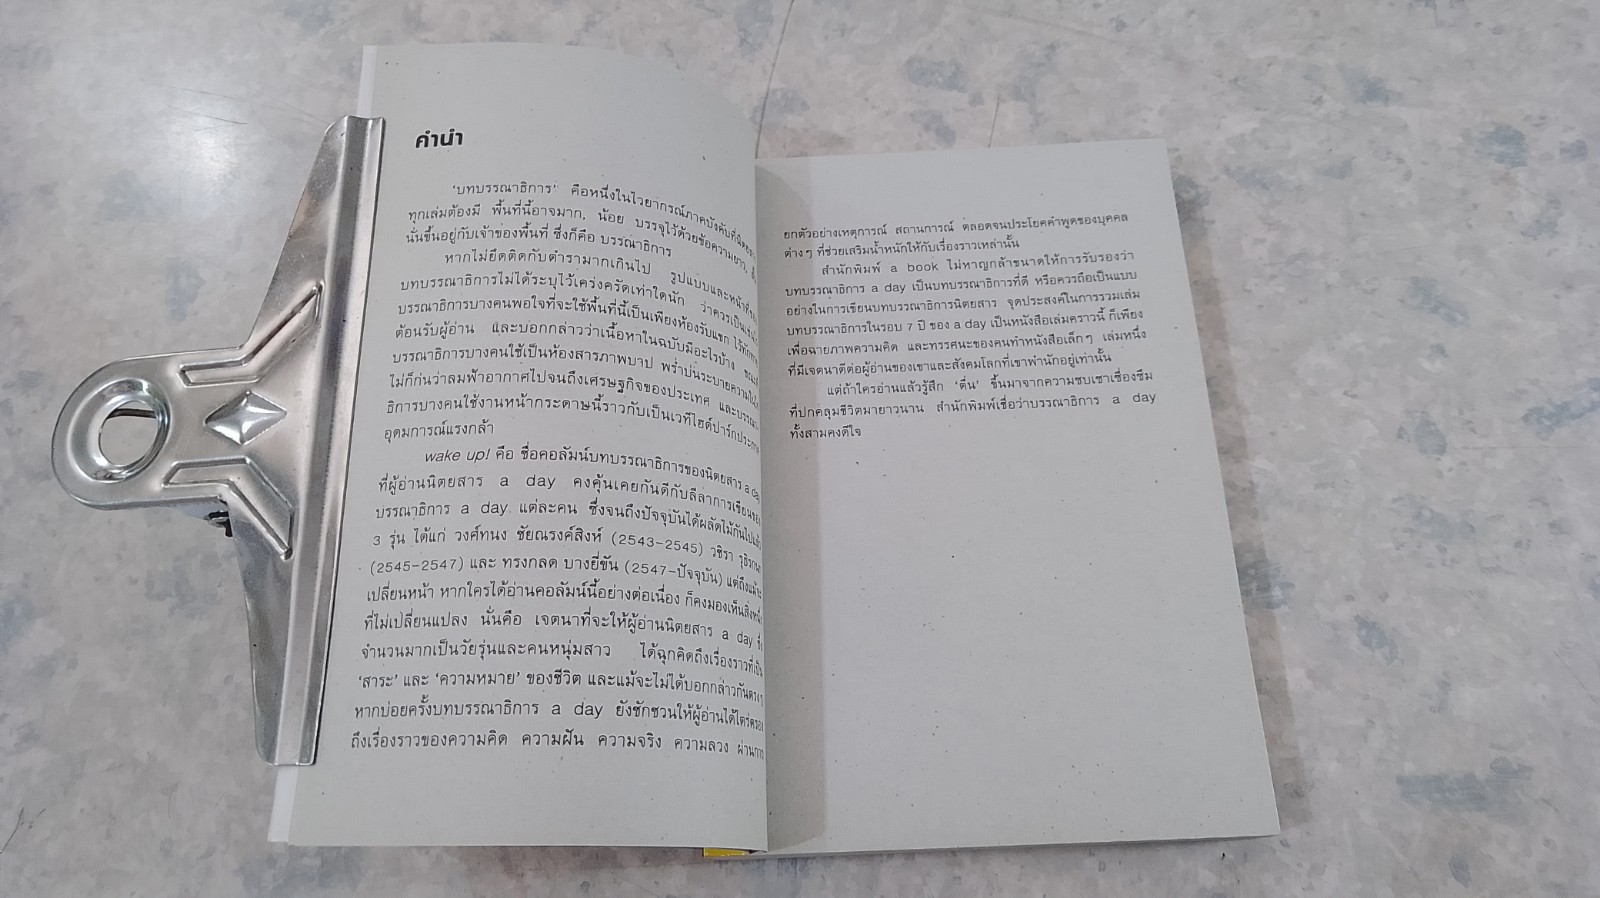 คำนำ
'บทบรรณาธิการ' คือหนึ่งในไวยากรณ์ภาคบังคับที่นิตยสาร
ทุกเล่มต้องมี พื้นที่นี้อาจมาก, น้อย บรรจุไว้ด้วยข้อความยาว,
นั่นขึ้นอยู่กับเจ้าของพื้นที่ ซึ่งก็คือ บรรณาธิการ
หากไม่ยึดติดกับตำรามากเกินไป รูปแบบและหน้าที่ของ
บทบรรณาธิการไม่ได้ระบุไว้เคร่งครัดเท่าใดนัก ว่าควรเป็นเช่นไร
บรรณาธิการบางคนพอใจที่จะใช้พื้นที่นี้เป็นเพียงห้องรับแขก ไว้ทักทาย
ต้อนรับผู้อ่าน และบอกกล่าวว่าเนื้อหาในฉบับมีอะไรบ้าง
บรรณาธิการบางคนใช้เป็นห้องสารภาพบาป พร่ำบ่นระบายความในใจ
ไม่ก็ก่นว่าลมฟ้าอากาศไปจนถึงเศรษฐกิจของประเทศ และบรรณา-
ธิการบางคนใช้งานหน้ากระดาษนี้ราวกับเป็นเวทีไฮด์ปาร์กประกาศ
อุดมการณ์แรงกล้า
wake up! คือ ชื่อคอลัมน์บทบรรณาธิการของนิตยสาร a day
ที่ผู้อ่านนิตยสาร a day คงคุ้นเคยกันดีกับลีลาการเขียนของ
บรรณาธิการ a day แต่ละคน ซึ่งจนถึงปัจจุบันได้ผลัดไม้กันไปแล้ว
3 รุ่น ได้แก่ วงศ์ทนง ชัยณรงค์สิงห์ (2543-2545) วชิรา
(2545-2547) และ ทรงกลด บางยี่ขัน (2547-ปัจจุบัน) แต่ถึงแม้จะ
เปลี่ยนหน้า หากใครได้อ่านคอลัมน์นี้อย่างต่อเนื่อง ก็คงมองเห็นสิ่งหนึ่ง
ที่ไม่เปลี่ยนแปลง นั่นคือ เจตนาที่จะให้ผู้อ่านนิตยสาร a day ซึ่ง
จำนวนมากเป็นวัยรุ่นและคนหนุ่มสาว ได้ฉุกคิดถึงเรื่องราวที่เป็น
'สาระ' และ 'ความหมาย' ของชีวิต และแม้จะไม่ได้บอกกล่าวกันตรงๆ
หากบ่อยครั้งบทบรรณาธิการ a day ยังชักชวนให้ผู้อ่านได้ไตร่ตรอง
ถึงเรื่องราวของความคิด ความฝัน ความจริง ความลวง ผ่านการ
ยกตัวอย่างเหตุการณ์ สถานการณ์ ตลอดจนประโยคคำพูดของบุคคล
ต่างๆ ที่ช่วยเสริมน้ำหนักให้กับเรื่องราวเหล่านั้น
สำนักพิมพ์ a book ไม่หาญกล้าขนาดให้การรับรองว่า
บทบรรณาธิการ a day เป็นบทบรรณาธิการที่ดี หรือควรถือเป็นแบบ
อย่างในการเขียนบทบรรณาธิการนิตยสาร จุดประสงค์ในการรวมเล่ม
บทบรรณาธิการในรอบ 7 ปี ของ a day เป็นหนังสือเล่มคราวนี้ ก็เพียง
เพื่อฉายภาพความคิด และทรรศนะของคนทำหนังสือเล็กๆ เล่มหนึ่ง
ที่มีเจตนาดีต่อผู้อ่านของเขาและสังคมโลกที่เขาพำนักอยู่เท่านั้น
แต่ถ้าใครอ่านแล้วรู้สึก 'ตื่น' ขึ้นมาจากความซบเซาเซื่องซึม
ที่ปกคลุมชีวิตมายาวนาน สำนักพิมพ์เชื่อว่าบรรณาธิการ a day
ทั้งสามคงดีใจ